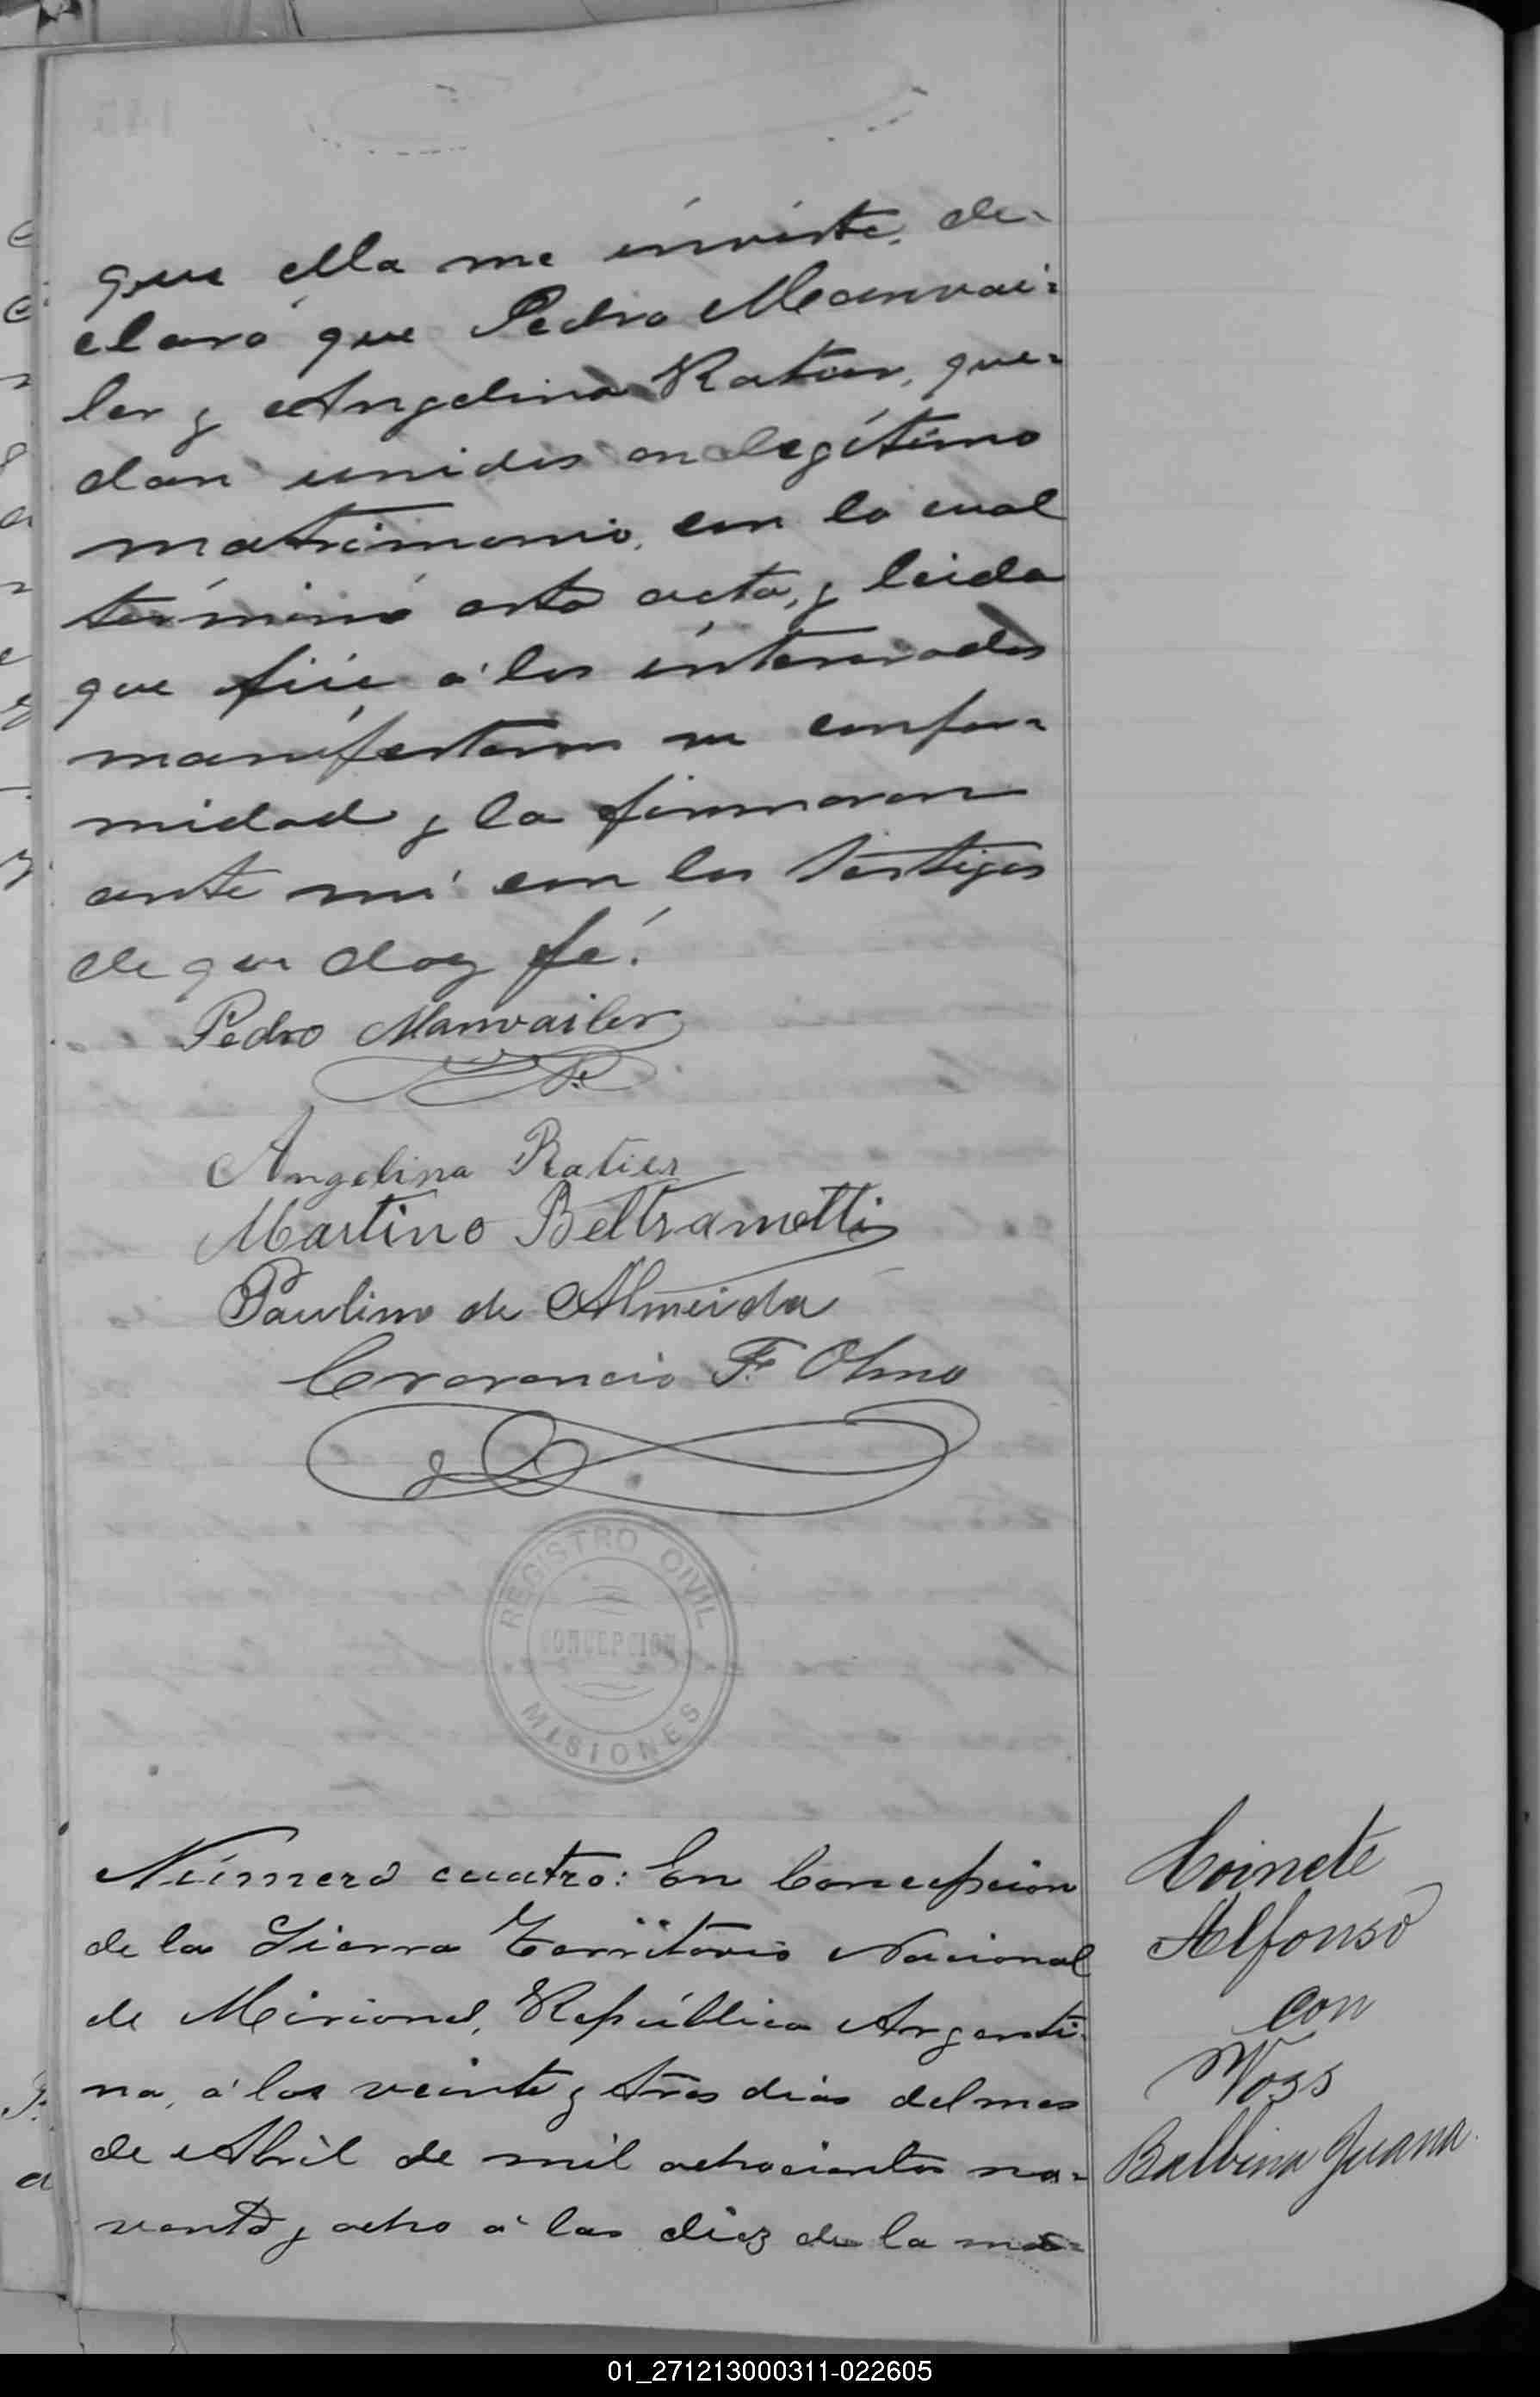 que ella me inviste, de-
claró que Pedro Manvai-
ler y Angelina Ratier, que-
dan unidos en legítimo
matrimonio, con lo cual
términó esta acta, y leida
que fué á los interesados
manifestaron su confor-
midad y la firmaron
ante mí con los testigos
de que doy fé.
Pedro Manvailer
Angelina Ratier
Martino Beltrametti
Paulino de Almeida
F. Olmo
REGISTRO CIVIL
CONCEPCION
MISIONES
Número cuatro: En Concepcion
de la Sierra Territorio Nacional
de Misiones, República Argenti-
na, á los veinte y tres dias del mes
de Abril de mil ochocientos no-
venta y ocho á las diez de la ma-
Coinete
Alfonso
con
Woss
Balbina Juana
01_271213000311-022605